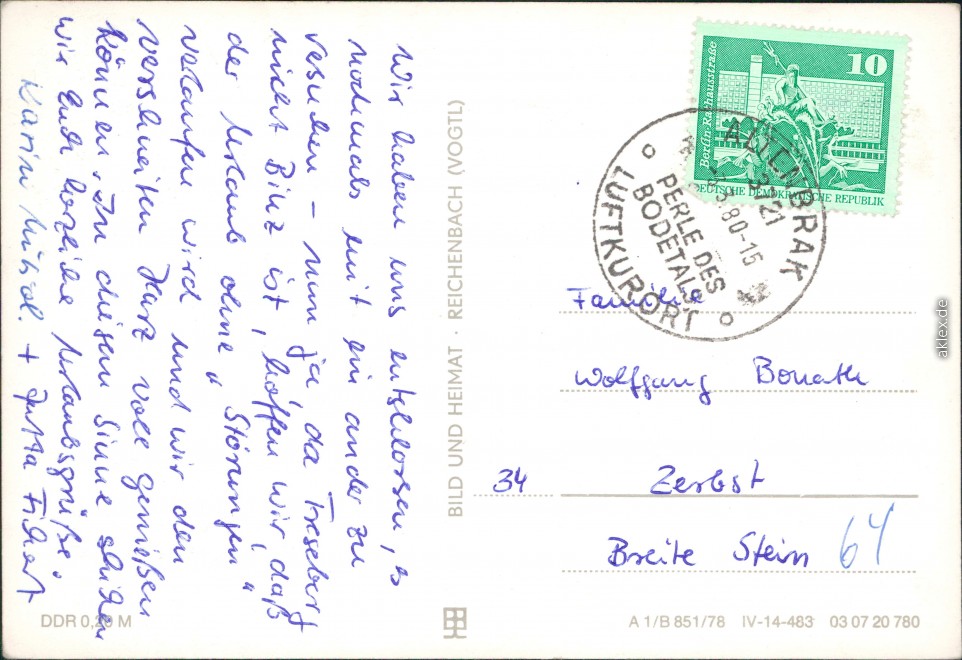 Wir haben uns entschlossen, es
nochmals mit ein ander zu
versuchen – nun ja, da Treseburg
nicht Binz ist, hoffen wir, daß
der Urlaub ohne "Störungen"
verlaufen wird und wir den
verschneiten Harz voll genießen
können. In diesem Sinne schicken
wir Euch herzliche Urlaubsgrüße.
Karin + Jutta
BILD UND HEIMAT · REICHENBACH (VOGTL)
10
Berlin-Rathausstraße
DEUTSCHE DEMOKRATISCHE REPUBLIK
ALTENBRAK
3721
.80-15
PERLE DES
BODETALS
LUFTKURORT
Familie
Wolfgang Bonath
34 Zerbst
Breite Stein 64
DDR 0,20 M
A 1/B 851/78 IV-14-483 03 07 20 780
aklex.de